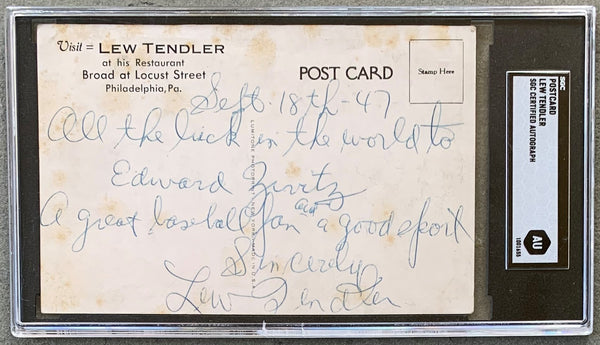 Visit = LEW TENDLER
at his Restaurant
Broad at Locust Street
Philadelphia, Pa.
POST CARD
Stamp Here
Sept 18th-47
All the luck in the world to
Edward
A great baseball fan and a good sport
Sincerely
Lew Tendler
SGC
POSTCARD
LEW TENDLER
SGC CERTIFIED AUTOGRAPH
AU